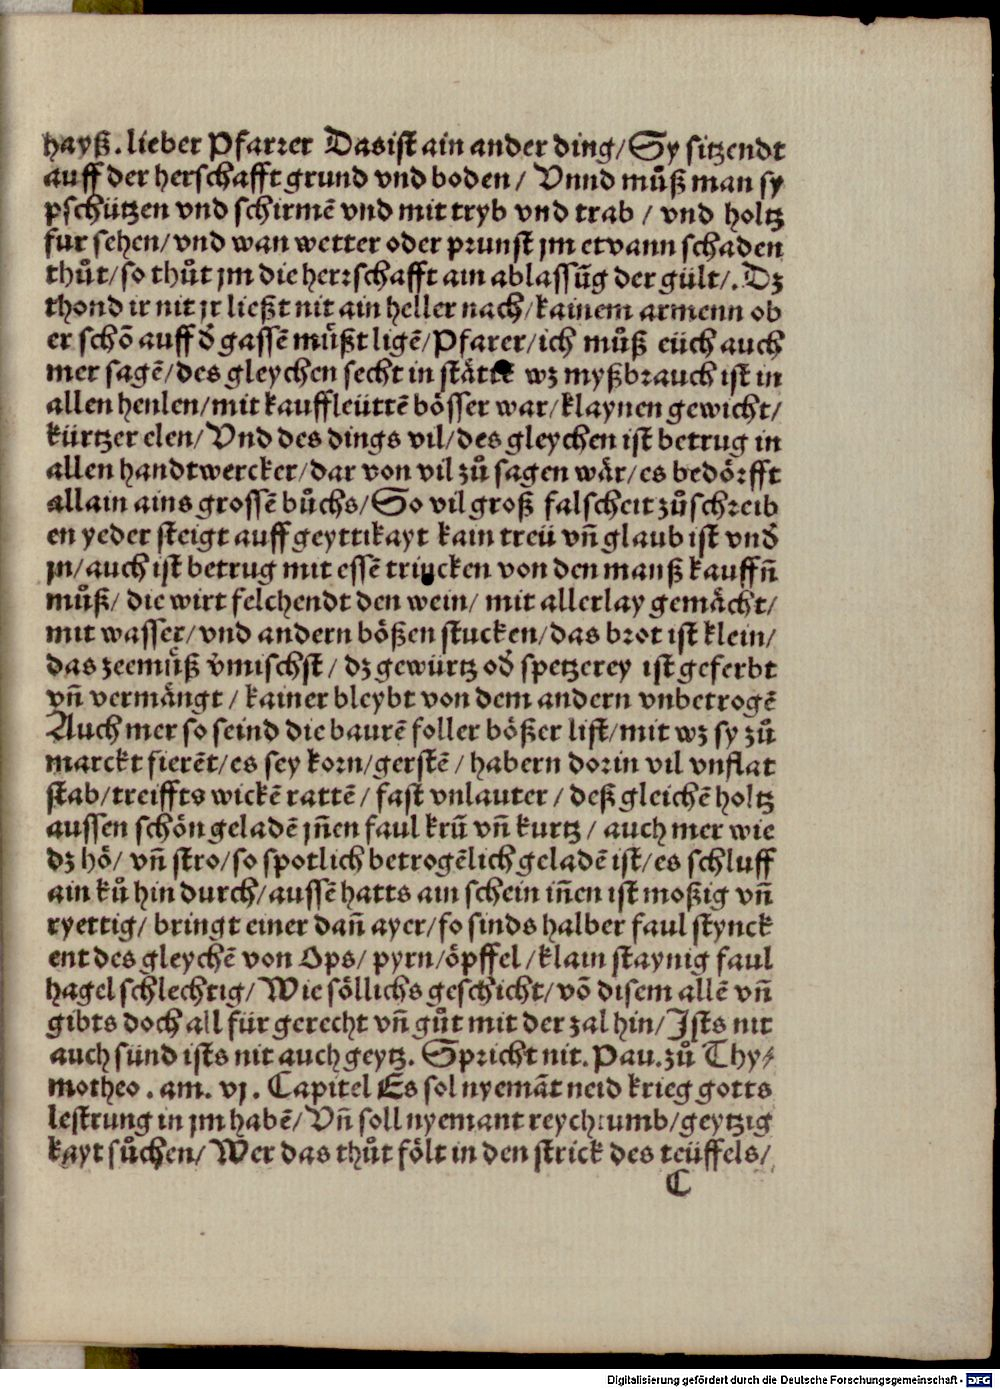 hayß. lieber Pfarrer Das ist ain ander ding/ Sy sitzendt
auff der herschafft grund vnd boden/ Vnnd můß man sy
pschützen vnd schirmē vnd mit tryb vnd trab / vnd holtz
fur sehen/ vnd wan wetter oder prunst jm etvann schaden
thůt/ so thůt jm die herrschafft ain ablassūg der gült/. Dz
thond ir nit jr ließt nit ain heller nach/ kainem armenn ob
er schō auff d̄ gassē můßt ligē/ Pfarer/ ich můß eüch auch
mer sagē/ des gleychen secht in stätte wz myßbrauch ist in
allen henlen/ mit kauffleüttē bösser war/ klaynen gewicht/
kürtzer elen/ Vnd des dings vil/ des gleychen ist betrug in
allen handtwercker/ dar von vil zů sagen wär/ es bedörfft
allain ains grossē bůchs/ So vil groß falscheit zůschreib
en yeder steigt auff geyttikayt kain treü vn̄ glaub ist vnd̄
jn/ auch ist betrug mit essē triucken von den manß kauffn̄
můß/ die wirt felchendt den wein/ mit allerlay gemächt/
mit wasser/ vnd andern bößen stucken/ das brot ist klein/
das zeemůß v̄mischst / dz gewürtz od̄ spetzerey ist geferbt
vn̄ vermängt / kainer bleybt von dem andern vnbetrogē
Auch mer so seind die baurē foller bößer list/ mit wz sy zů
marckt fierēt/ es sey korn/ gerstē / habern dorin vil vnflat
stab/ treiffts wickē rattē / fast vnlauter / deß gleichē holtz
aussen schön geladē jn̄en faul krū vn̄ kurtz / auch mer wie
dz hö/ vn̄ stro/ so spotlich betrogēlich geladē ist/ es schluff
ain ků hin durch/ aussē hatts ain schein in̄en ist moßig vn̄
ryettig/ bringt einer dan̄ ayer/ so sinds halber faul stynck
ent des gleychē von Ops/ pyrn/ öpffel/ klain staynig faul
hagel schlechtig/ Wie söllichs geschicht/ vō disem allē vn̄
gibts doch all für gerecht vn̄ gůt mit der zal hin/ Ists nit
auch sünd ists nit auch geytz. Spricht nit. Pau. zů Thy⸗
motheo. am. vj. Capitel Es sol nyemāt neid krieg gotts
lestrung in jm habē/ Vn̄ soll nyemant reychtumb/ geytzig
kayt sůchen/ Wer das thůt fölt in den strick des teüffels/
C
Digitalisierung gefördert durch die Deutsche Forschungsgemeinschaft - DFG